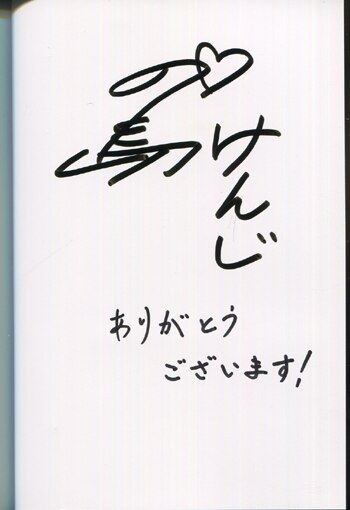 けんじ
ありがとう
ございます!